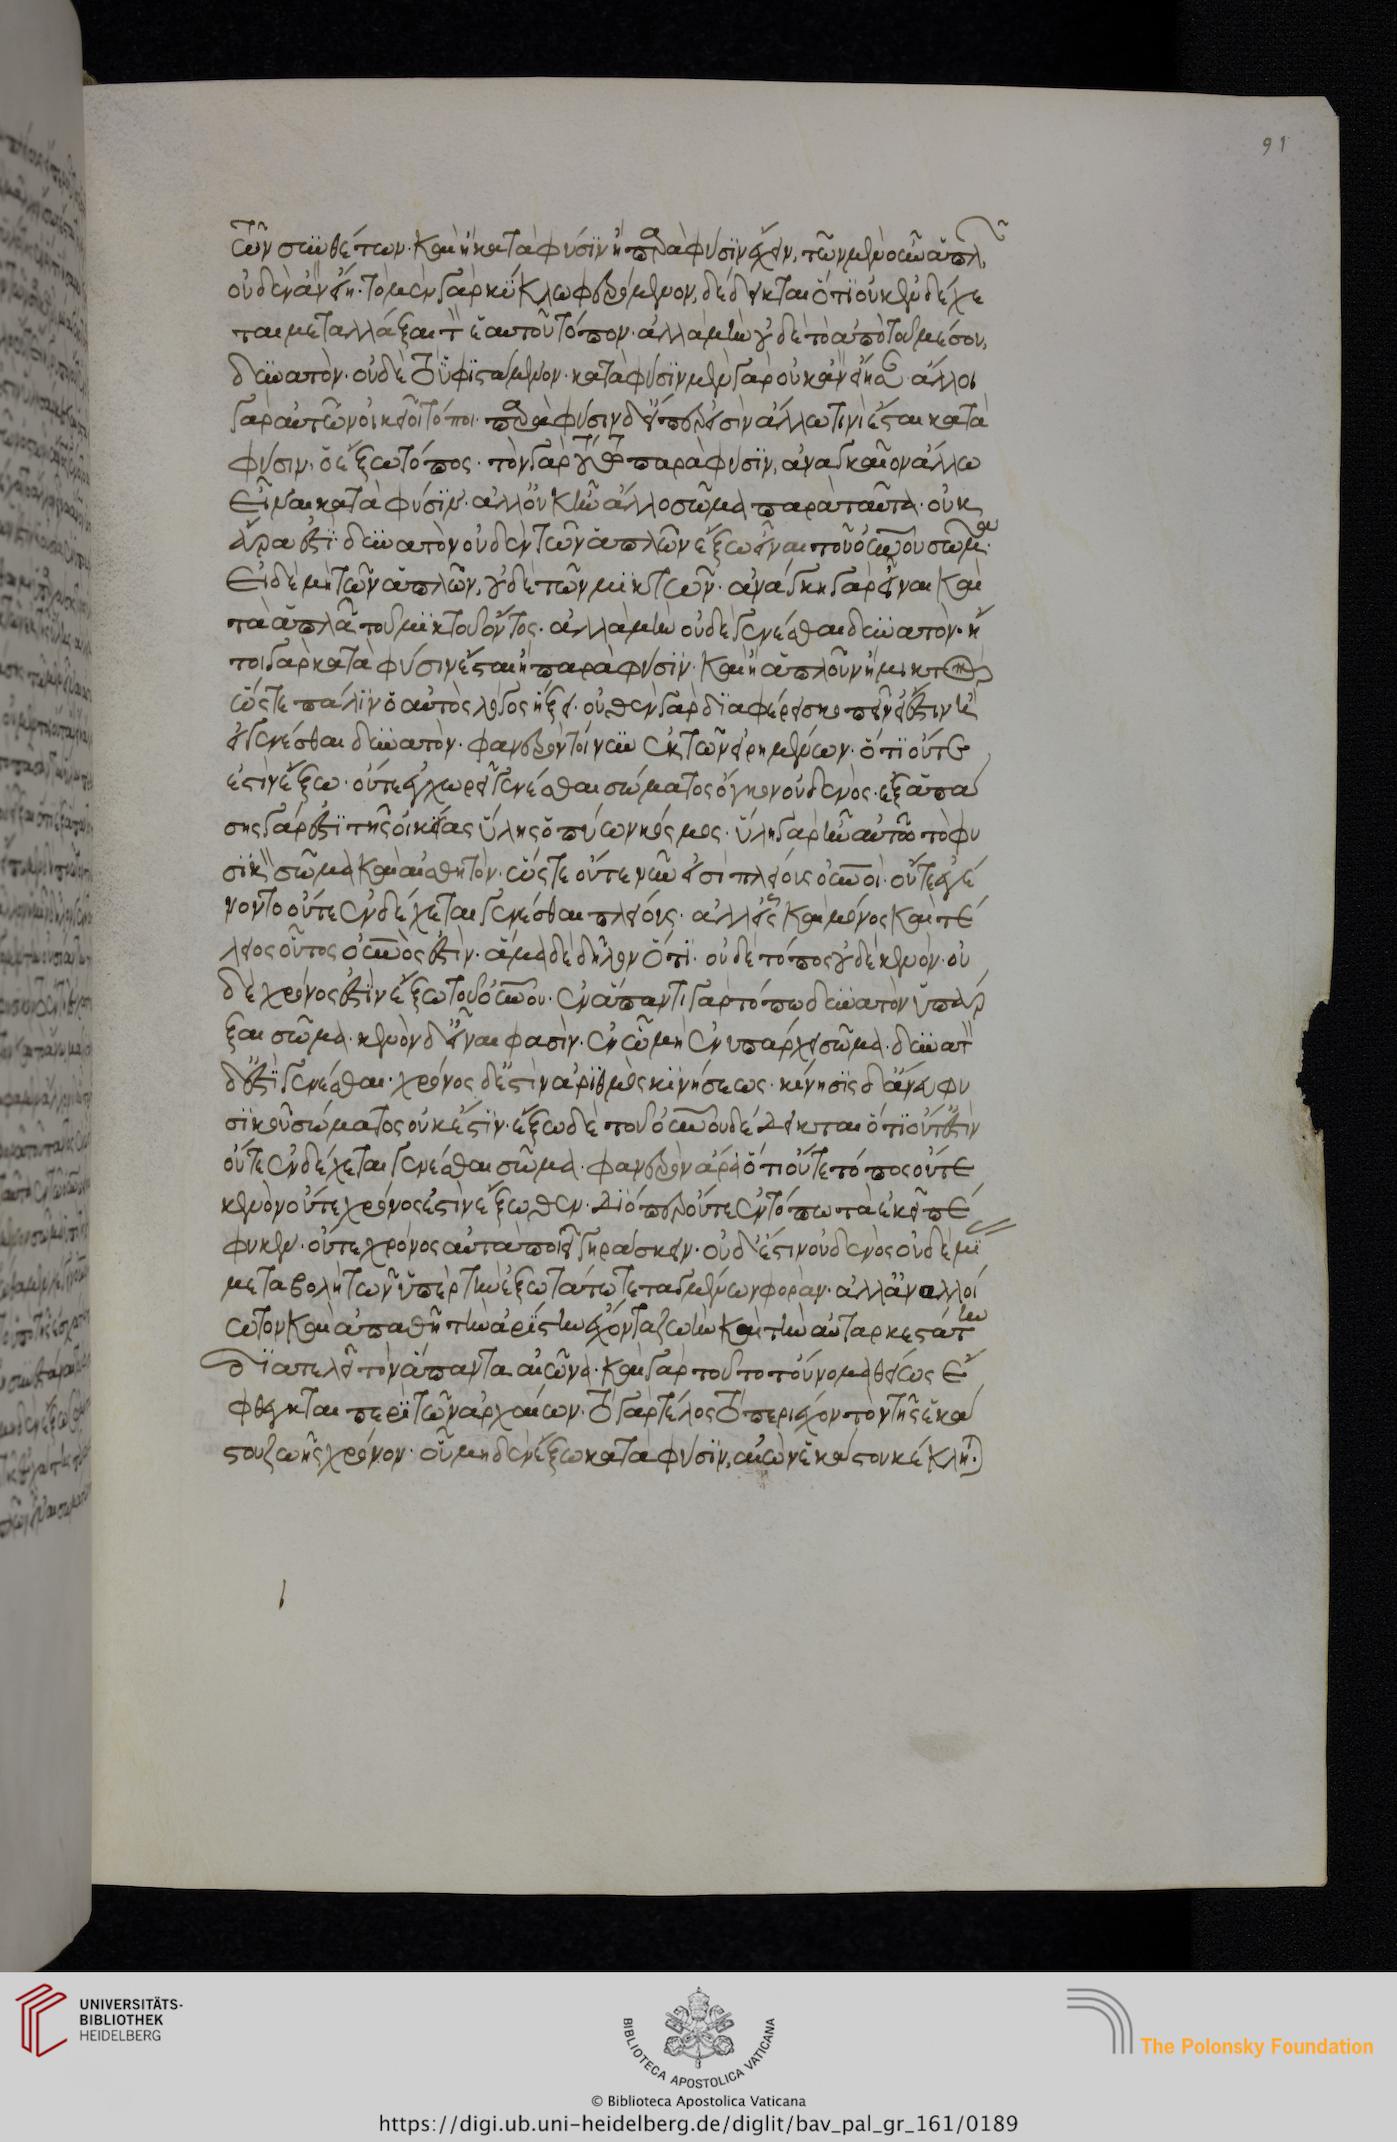 τῶν συνθέτων· καὶ ἢ κατὰ φύσιν ἢ παρὰ φύσιν ἔχειν, τῶν μὲν οὖν ἁπλῶν
οὐδὲν ἂν εἴη· τὸ μὲν γὰρ κύκλω φερόμενον, δέδεικται ὅτι οὐκ ἐνδέχε
ται μεταλλάξαι τὸν ἑαυτοῦ τόπον· ἀλλὰ μὴν οὐδὲ τὸ ἀπὸ τοῦ μέσου,
δυνατὸν· οὐδὲ τὸ ὑφιστάμενον· κατὰ φύσιν μὲν γὰρ οὐκ ἂν εἴησαν· ἄλλοι
γὰρ αὐτῶν οἰκεῖοι τόποι· παρὰ φύσιν δ' εἴπερ εἰσὶν ἄλλω τινὶ ἔσται κατὰ
φύσιν· ὁ ἔξω τόπος· τὸν γὰρ παρὰ φύσιν, ἀναγκαῖον ἄλλω
εἶναι κατὰ φύσιν· ἀλλ' οὐκ ἦν ἄλλο σῶμα παρὰ ταῦτα· οὐκ
ἄρα ἐστὶ δυνατὸν οὐδὲν τῶν ἁπλῶν ἔξω εἶναι τοῦ οὐνοῦ σῶμα·
Εἰ δὲ μὴ τῶν ἁπλῶν, οὐδὲ τῶν μικτῶν· ἀνάγκη γὰρ εἶναι καὶ
τὰ ἁπλᾶ τοῦ μικτοῦ ὄντος· ἀλλὰ μὴν οὐδὲ γενέσθαι δυνατὸν· ἤ
τοι γὰρ κατὰ φύσιν ἔσται ἢ παρὰ φύσιν· καὶ ἢ ἁπλοῦν ἢ μικτὸν
ὥστε πάλιν ὁ αὐτὸς λόγος ἥξει· οὐθὲν γὰρ διαφέρει σκοπεῖν εἰ ἔστιν ἢ
εἰ γενέσθαι δυνατὸν· φανερὸν τοίνυν ἐκ τῶν εἰρημένων· ὅτι οὔτε
ἐστὶν ἔξω· οὔτε ἐγχωρεῖ γενέσθαι σώματος ὄγκον οὐδενὸς· ἐξ ἁπά
σης γάρ ἐστι τῆς οἰκείας ὕλης ὁ πᾶς κόσμος· ὕλη γὰρ ἦν αὐτῶ τὸ φυ
σικὸν σῶμα καὶ αἰσθητὸν· ὥστε οὔτε νῦν εἰσὶ πλείους οὐνοὶ· οὔτε ἐγέ
νοντο οὔτε ἐνδέχεται γενέσθαι πλείους· ἀλλ' εἷς καὶ μόνος καὶ τέ
λειος οὗτος οὐνὸς ἐστὶν· ἅμα δὲ δῆλον ὅτι· οὐδὲ τόπος οὐδὲ κενὸν· οὐ
δὲ χρόνος ἐστὶν ἔξω τοῦ οὐνοῦ· ἐν ἅπαντι γὰρ τόπω δυνατὸν ὑπάρ
ξαι σῶμα· κενὸν δ' εἶναι φασὶν· ἐν ὧ μὴ ἐνυπάρχει σῶμα· δυνατὸν
δ' ἐστὶ γενέσθαι· χρόνος δέ ἐστιν ἀριθμὸς κινήσεως· κίνησις δ' ἄνευ φυ
σικοῦ σώματος οὐκ ἔστιν· ἔξω δὲ τοῦ οὐνοῦ δέδεικται ὅτι οὔτ' ἐστὶν
οὔτε ἐνδέχεται γενέσθαι σῶμα· φανερὸν ἄρα ὅτι οὔτε τόπος οὔτε
κενὸν οὔτε χρόνος ἐστὶν ἔξωθεν· Διόπερ οὔτε ἐν τόπω τὰ ἐκεῖ πέ
φυκεν· οὔτε χρόνος αὐτὰ ποιεῖ γηράσκειν· οὐδ' ἔστιν οὐδενὸς οὐδεμί
μεταβολὴ τῶν ὑπὲρ τὴν ἐξωτάτω τεταγμένων φοράν· ἀλλ' ἀναλλοί
ωτον καὶ ἀπαθῆ τὴν ἀρίστην ἔχοντα ζωὴν καὶ τὴν αὐταρκεστάτην
διατελεῖ τὸν ἅπαντα αἰῶνα· καὶ γὰρ τοῦτο τοὔνομα θείως ἔ
φθεγκται περὶ τῶν ἀρχαίων· τὸ γὰρ τέλος τὸ περιέχον τὸν τῆς ἑκά
στου ζωῆς χρόνον· οὗ μηδὲν ἔξω κατὰ φύσιν, αἰὼν ἑκάστου κέκληται
91
UNIVERSITÄTS-
BIBLIOTHEK
HEIDELBERG
BIBLIOTECA APOSTOLICA VATICANA
The Polonsky Foundation
© Biblioteca Apostolica Vaticana
https://digi.ub.uni-heidelberg.de/diglit/bav_pal_gr_161/0189